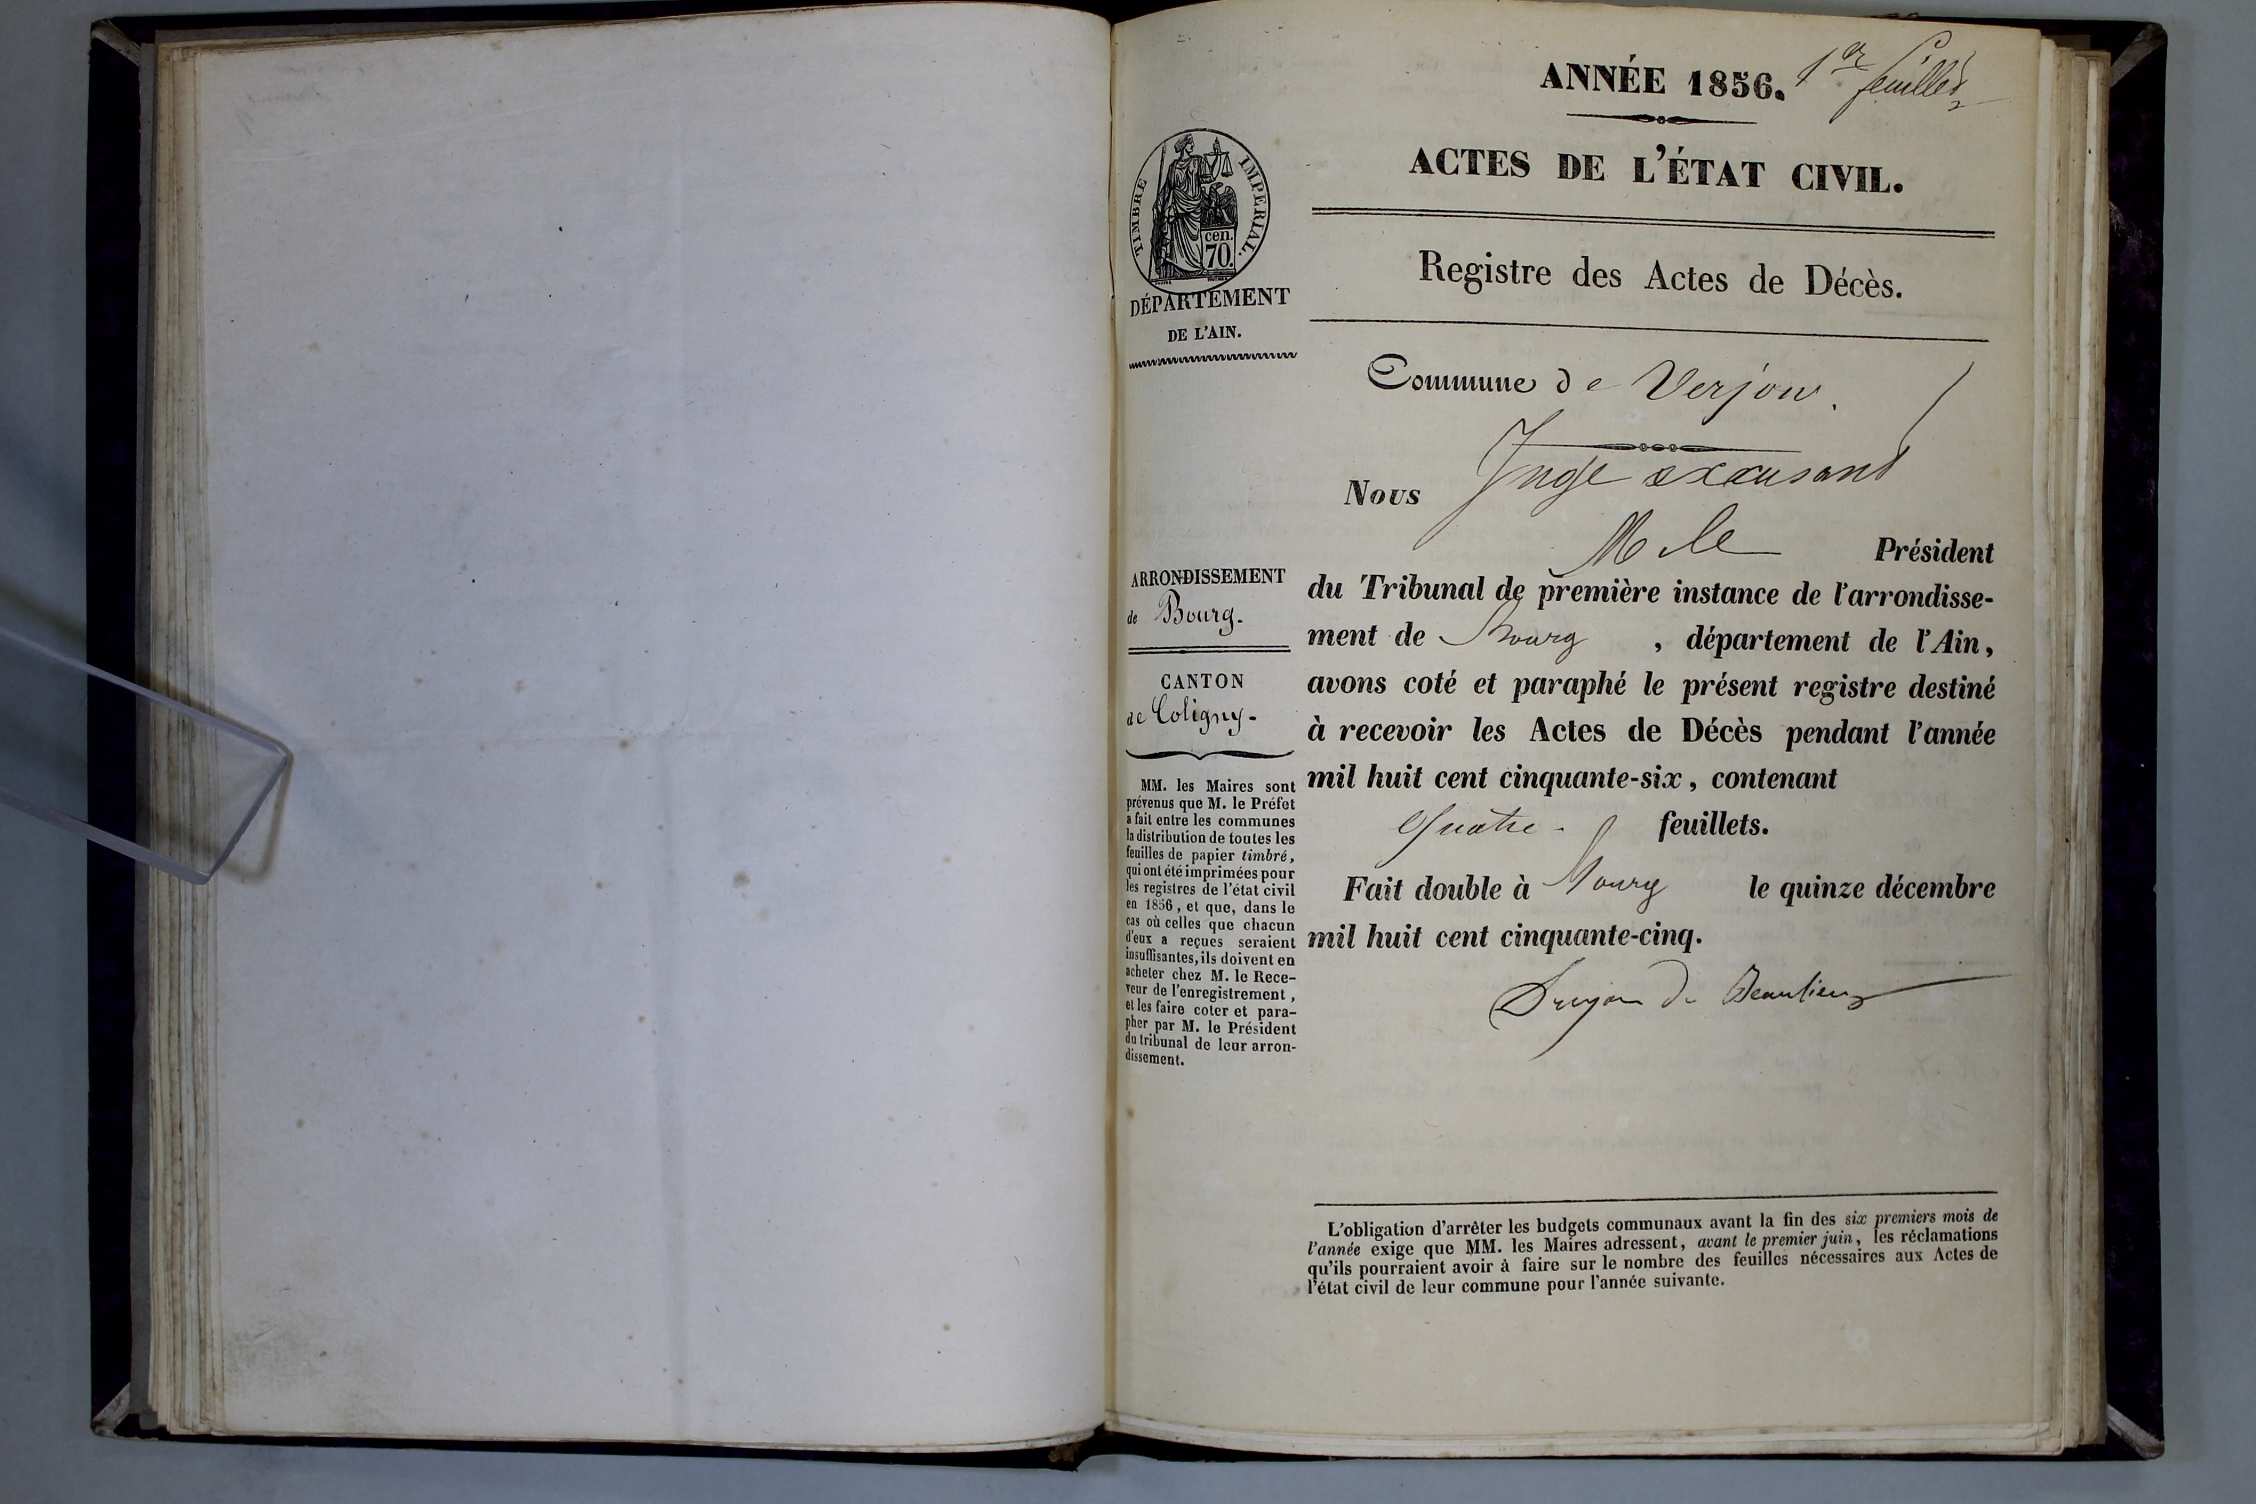 ANNÉE 1856.
1er feuillet
ACTES DE L'ÉTAT CIVIL.
Registre des Actes de Décès.
TIMBRE IMPERIAL.
cen.
70.
DÉPARTEMENT
DE L'AIN.
Commune de Verjon.
Nous Juge excusant
M le Président
du Tribunal de première instance de l'arrondisse-
ment de Bourg, département de l'Ain,
avons coté et paraphé le présent registre destiné
à recevoir les Actes de Décès pendant l'année
mil huit cent cinquante-six, contenant
quatre feuillets.
Fait double à Bourg le quinze décembre
mil huit cent cinquante-cinq.
de Beaulieu
ARRONDISSEMENT
de Bourg.
CANTON
de Coligny.
MM. les Maires sont
prévenus que M. le Préfet
a fait entre les communes
la distribution de toutes les
feuilles de papier timbré,
qui ont été imprimées pour
les registres de l'état civil
en 1856, et que, dans le
cas où celles que chacun
d'eux a reçues seraient
insuffisantes, ils doivent en
acheter chez M. le Rece-
veur de l'enregistrement,
et les faire coter et para-
pher par M. le Président
du tribunal de leur arron-
dissement.
L'obligation d'arrêter les budgets communaux avant la fin des six premiers mois de
l'année exige que MM. les Maires adressent, avant le premier juin, les réclamations
qu'ils pourraient avoir à faire sur le nombre des feuilles nécessaires aux Actes de
l'état civil de leur commune pour l'année suivante.